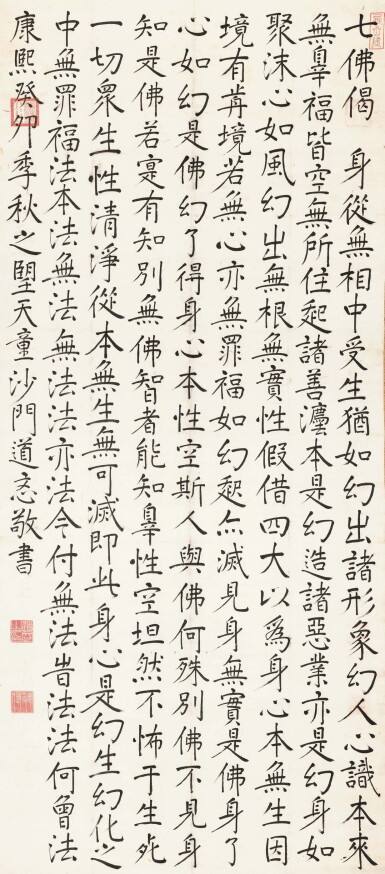 七佛偈　身從無相中受生猶如幻出諸形象幻人心識本來
無辠福皆空無所住起諸善灋本是幻造諸惡業亦是幻身如
聚沫心如風幻出無根無實性假借四大以爲身心本無生因
境有歬境若無心亦無罪福如幻起亦滅見身無實是佛身了
心如幻是佛幻了得身心本性空斯人與佛何殊別佛不見身
知是佛若寔有知別無佛智者能知辠性空坦然不怖于生死
一切衆生性清淨從本無生無可滅即此身心是幻生幻化之
中無罪福法本法無法無法法亦法今付無法旹法法何曾法
康熙癸卯季秋之朢天童沙門道忞敬書